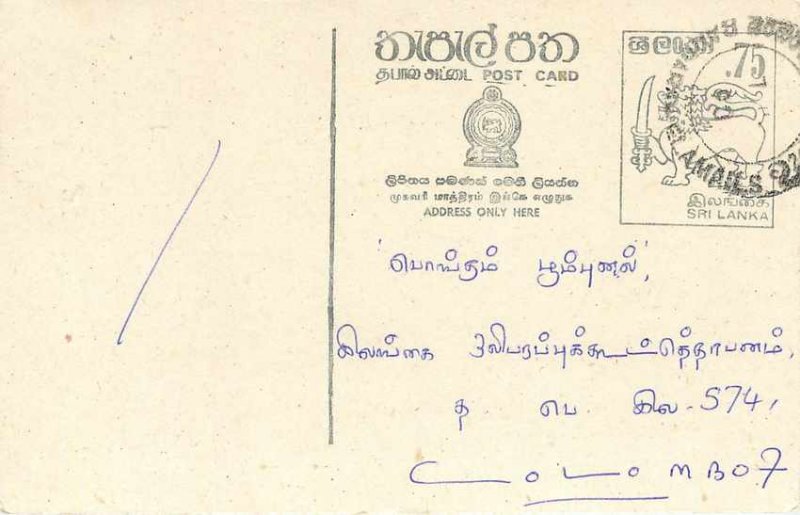 තැපැල් පත
தபால் அட்டை POST CARD
ලිපිනය පමණක් මෙහි ලියන්න
முகவரி மாத்திரம் இங்கே எழுதுக
ADDRESS ONLY HERE
ශ්‍රී ලංකා
.75
இலங்கை
SRI LANKA
'பொங்கும் பூம்புனல்',
இலங்கை ஒலிபரப்புக்கூட்டுத்தாபனம்,
த பெ இல-574,
Colombo 7